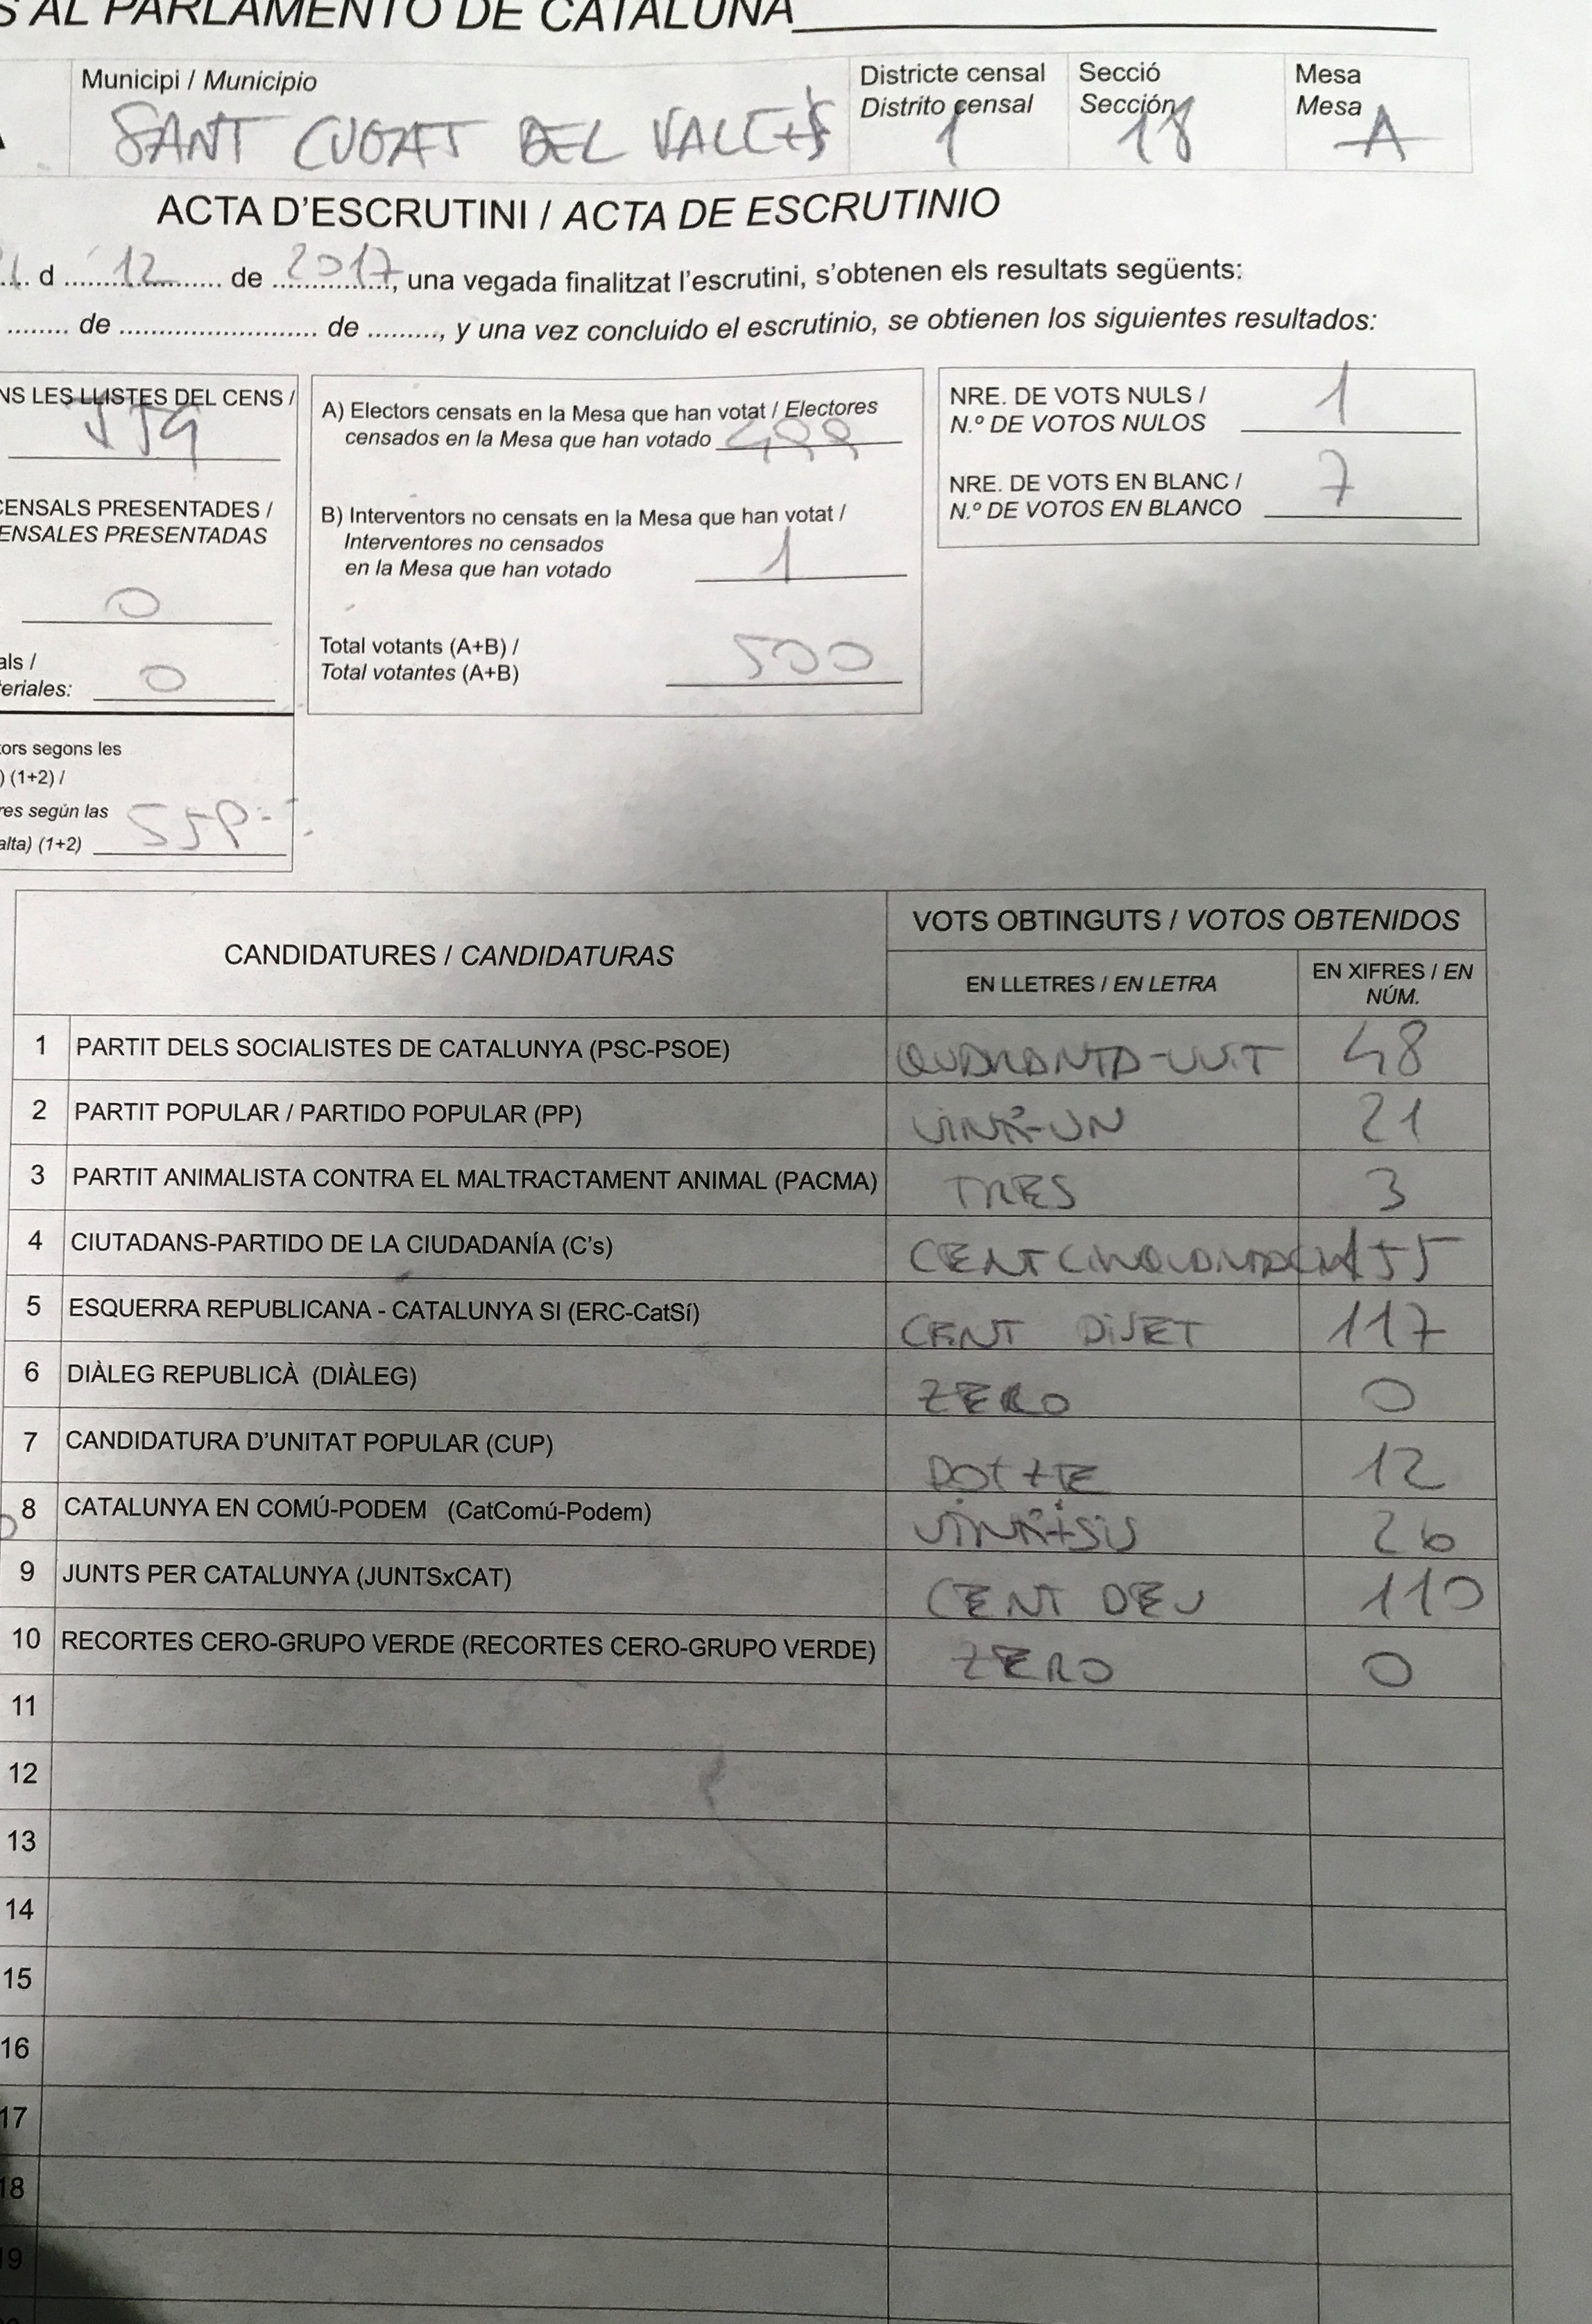 S AL PARLAMENTO DE CATALUÑA
Municipi / Municipio
SANT CUGAT DEL VALLÈS
Districte censal
Distrito censal
1
Secció
Sección
18
Mesa
Mesa
A
ACTA D'ESCRUTINI / ACTA DE ESCRUTINIO
d 12 de 2017, una vegada finalitzat l'escrutini, s'obtenen els resultats següents:
de de, y una vez concluido el escrutinio, se obtienen los siguientes resultados:
NS LES LLISTES DEL CENS /
CENSALS PRESENTADES /
ENSALES PRESENTADAS
0
als /
eriales: 0
ors segons les
) (1+2) /
res según las
alta) (1+2)
A) Electors censats en la Mesa que han votat / Electores
censados en la Mesa que han votado 499
B) Interventors no censats en la Mesa que han votat /
Interventores no censados
en la Mesa que han votado 1
Total votants (A+B) /
Total votantes (A+B) 500
NRE. DE VOTS NULS /
N.º DE VOTOS NULOS 1
NRE. DE VOTS EN BLANC /
N.º DE VOTOS EN BLANCO 7
CANDIDATURES / CANDIDATURAS
VOTS OBTINGUTS / VOTOS OBTENIDOS
EN LLETRES / EN LETRA
EN XIFRES / EN
NÚM.
1 PARTIT DELS SOCIALISTES DE CATALUNYA (PSC-PSOE) QUARANTA-VUIT 48
2 PARTIT POPULAR / PARTIDO POPULAR (PP) VINT-I-UN 21
3 PARTIT ANIMALISTA CONTRA EL MALTRACTAMENT ANIMAL (PACMA) TRES 3
4 CIUTADANS-PARTIDO DE LA CIUDADANÍA (C's) CENT CINQUANTA 155
5 ESQUERRA REPUBLICANA - CATALUNYA SI (ERC-CatSí) CENT DISET 117
6 DIÀLEG REPUBLICÀ (DIÀLEG) ZERO 0
7 CANDIDATURA D'UNITAT POPULAR (CUP) DOTTE 12
8 CATALUNYA EN COMÚ-PODEM (CatComú-Podem) VINT-I-SIS 26
9 JUNTS PER CATALUNYA (JUNTSxCAT) CENT DEU 110
10 RECORTES CERO-GRUPO VERDE (RECORTES CERO-GRUPO VERDE) ZERO 0
11
12
13
14
15
16
17
18
19